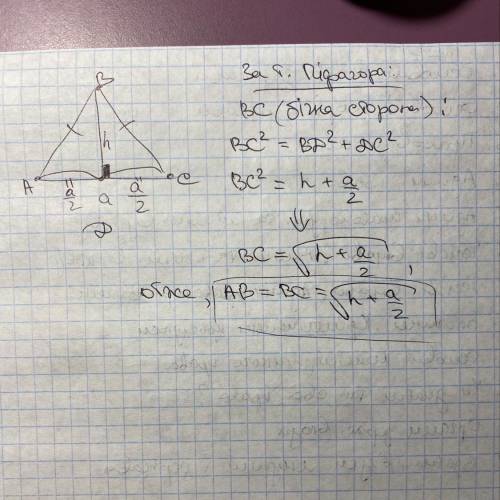 B
h
A C
a/2 a a/2
D
За т. Піфагора:
BC (біжна сторона):
BC² = BD² + DC²
BC² = h + a/2
⇓
BC = √(h + a/2),
отже, AB = BC = √(h + a/2)